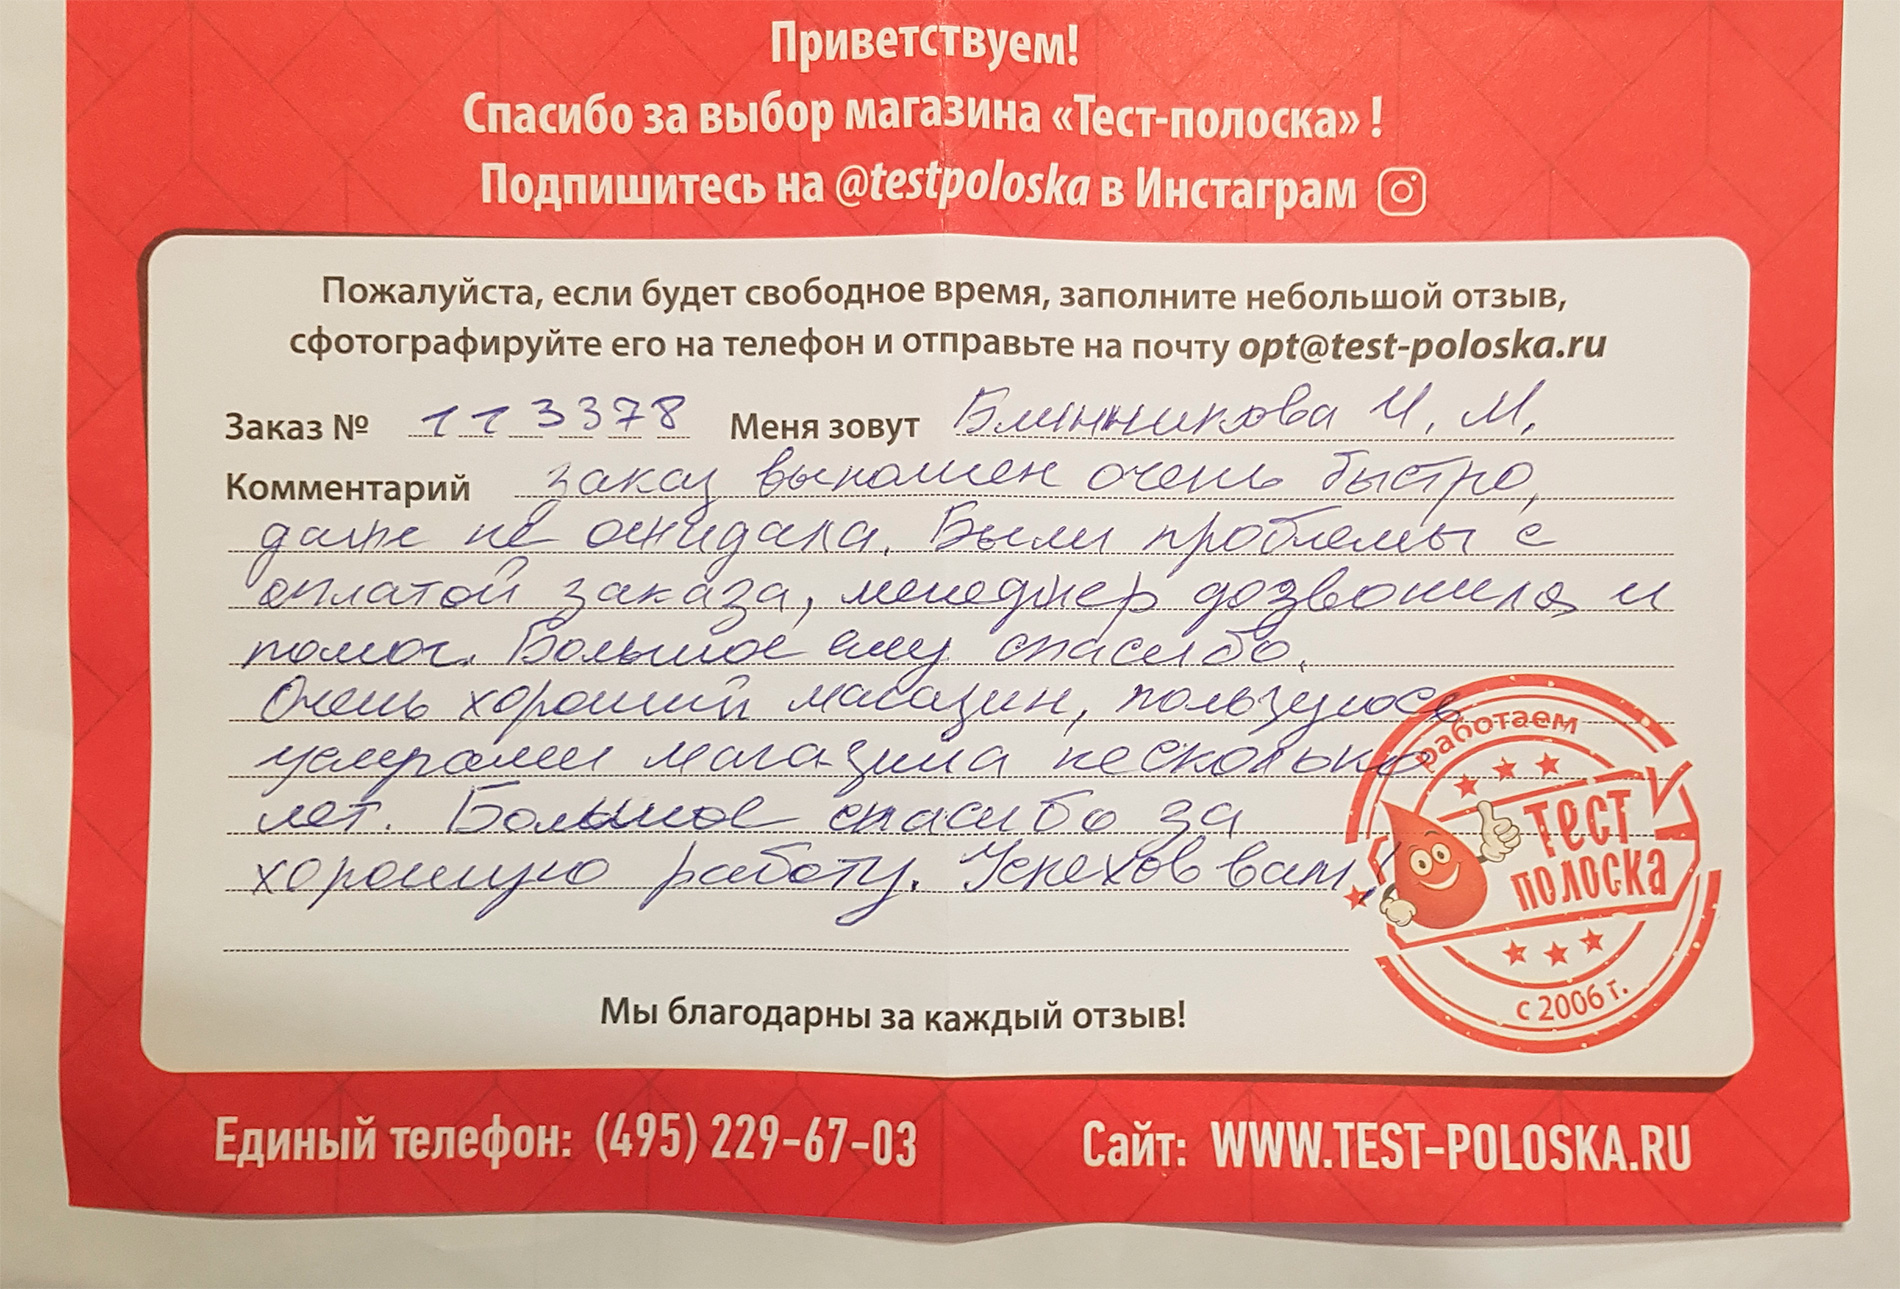 Приветствуем!
Спасибо за выбор магазина «Тест-полоска» !
Подпишитесь на @testpoloska в Инстаграм
Пожалуйста, если будет свободное время, заполните небольшой отзыв,
сфотографируйте его на телефон и отправьте на почту opt@test-poloska.ru
Заказ № 113378 Меня зовут Блинникова И. М.
Комментарий заказ выполнен очень быстро,
даже не ожидала. Были проблемы с
оплатой заказа, менеджер дозвонился и
помог. Большое ему спасибо.
Очень хороший магазин, пользуюсь
услугами магазина несколько
лет. Большое спасибо за
хорошую работу. Успехов вам!
работаем
ТЕСТ
ПОЛОСКА
с 2006 г.
Мы благодарны за каждый отзыв!
Единый телефон: (495) 229-67-03 Сайт: WWW.TEST-POLOSKA.RU